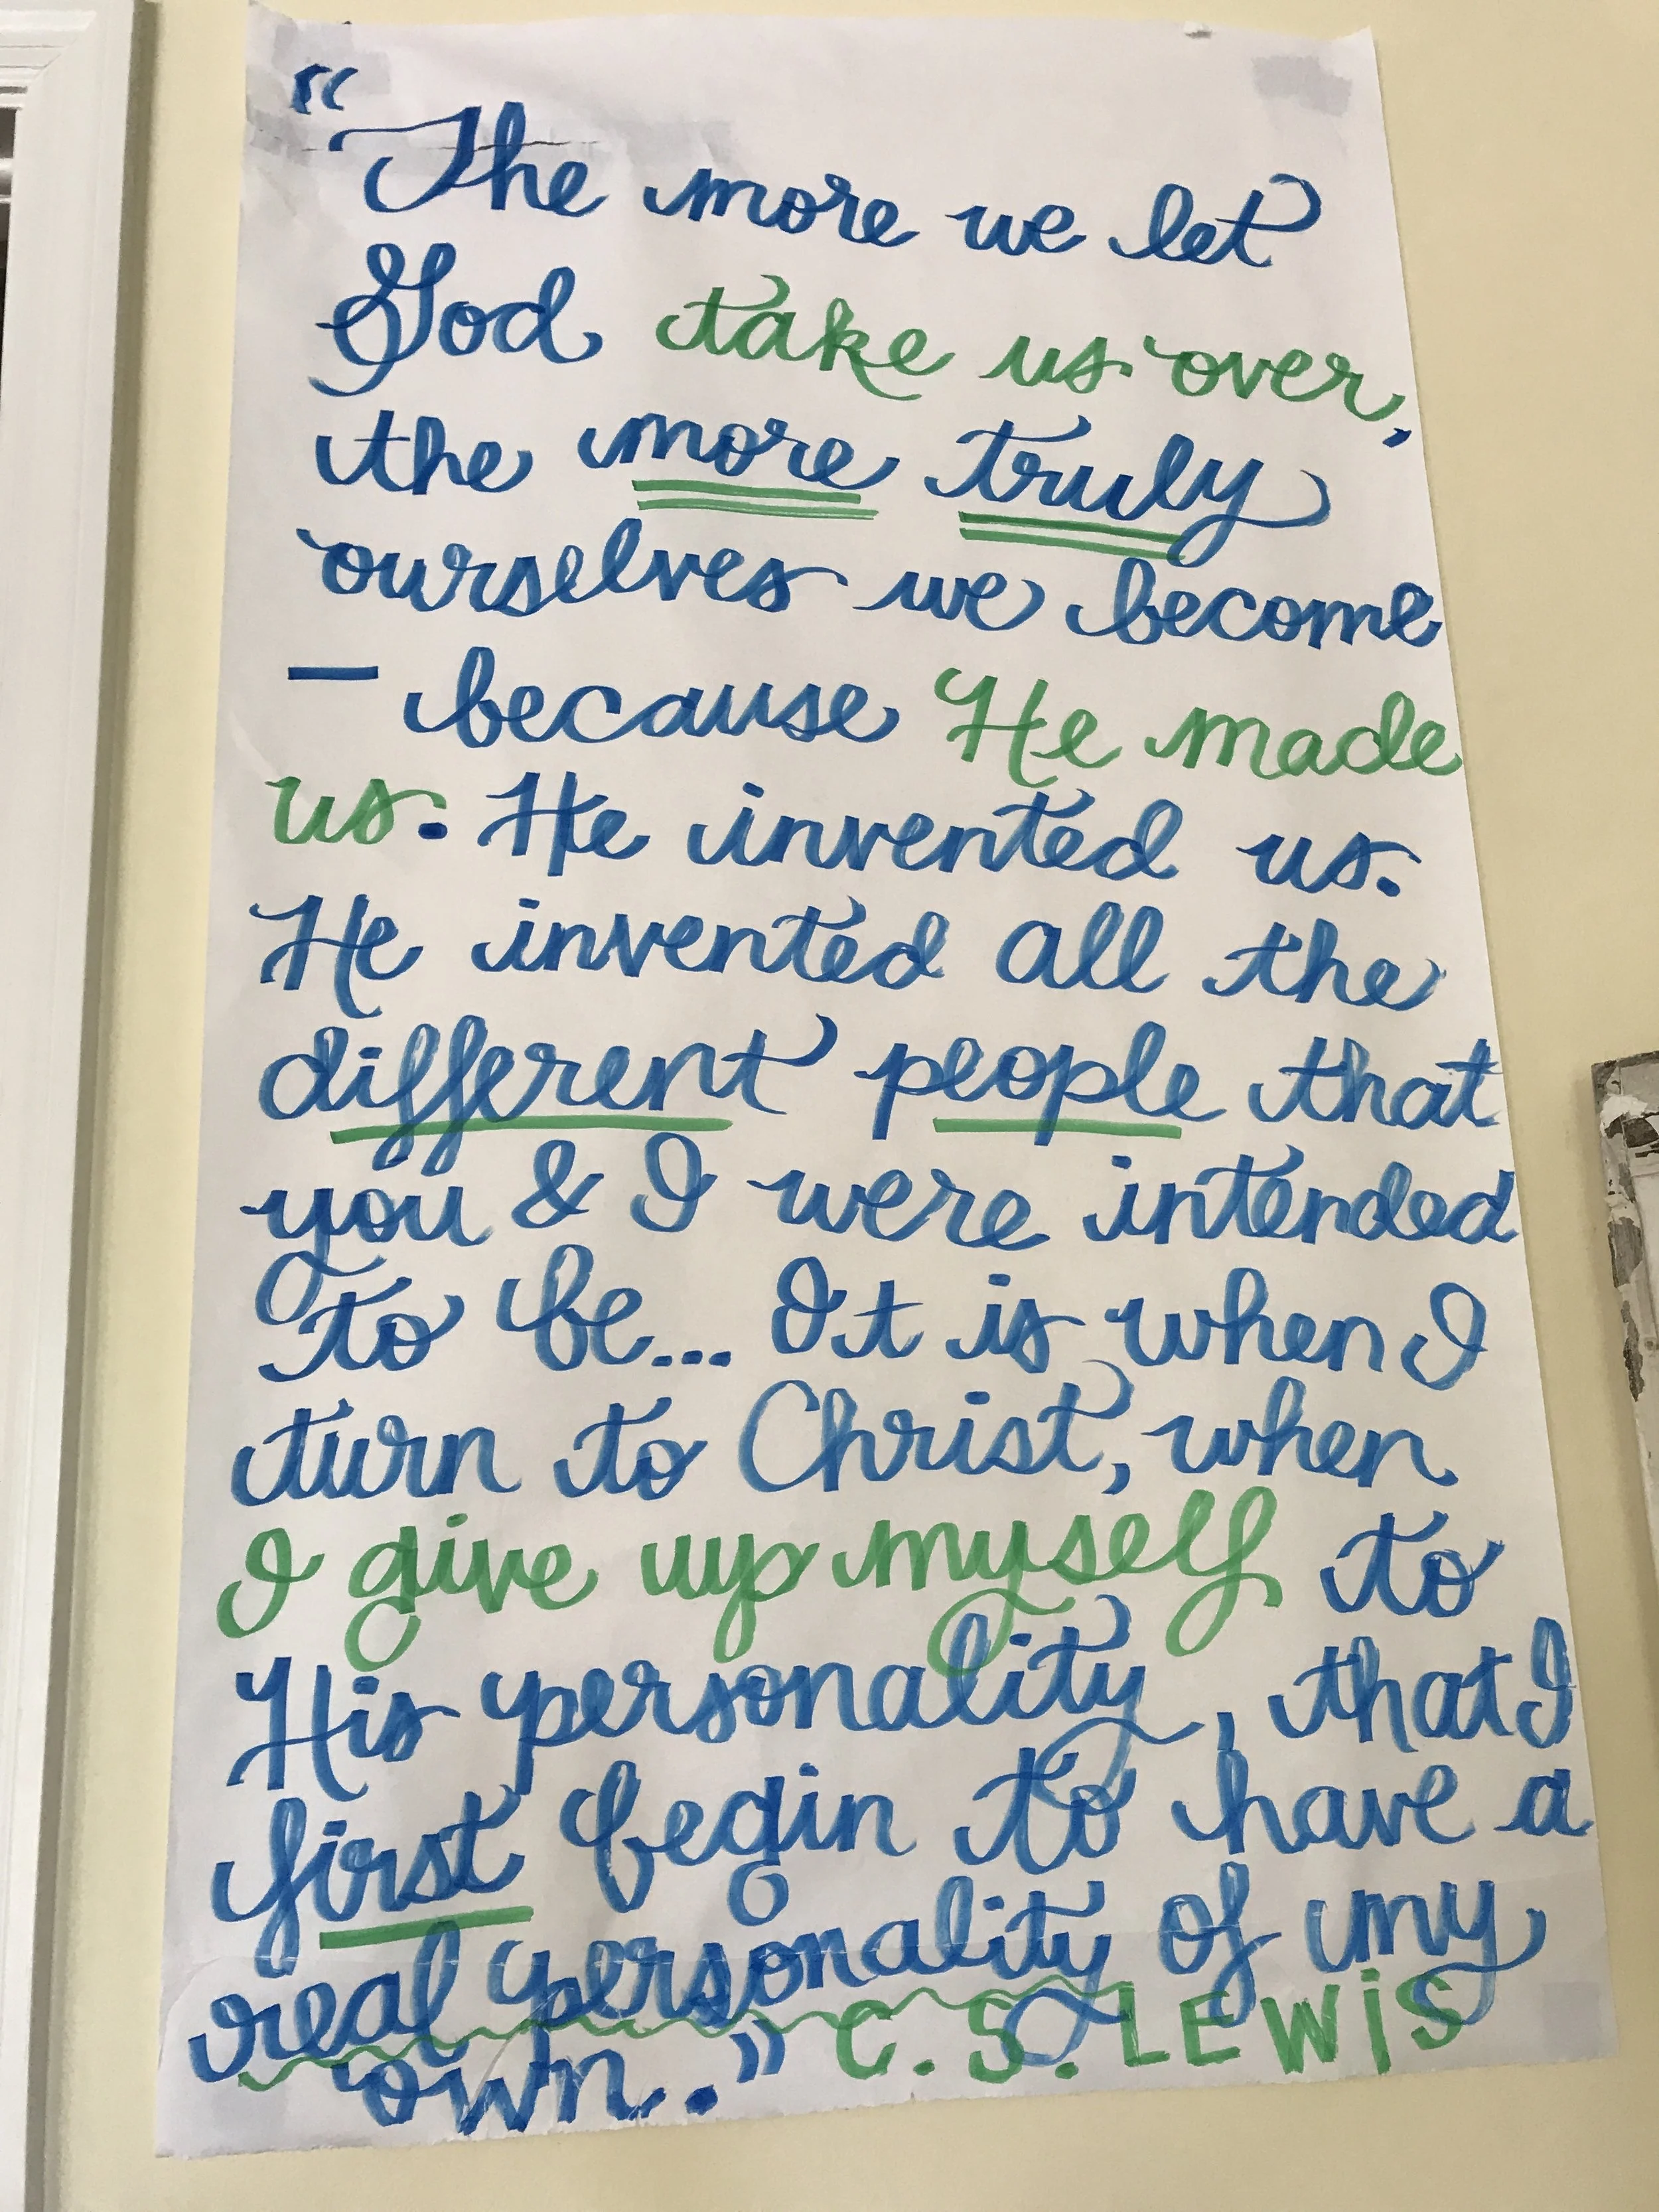 "The more we let
God take us over,
the more truly
ourselves we become
— because He made
us. He invented us.
He invented all the
different people that
you & I were intended
to be... It is when I
turn to Christ, when
I give up myself to
His personality, that I
first begin to have a
real personality of my
own." C.S. LEWiS